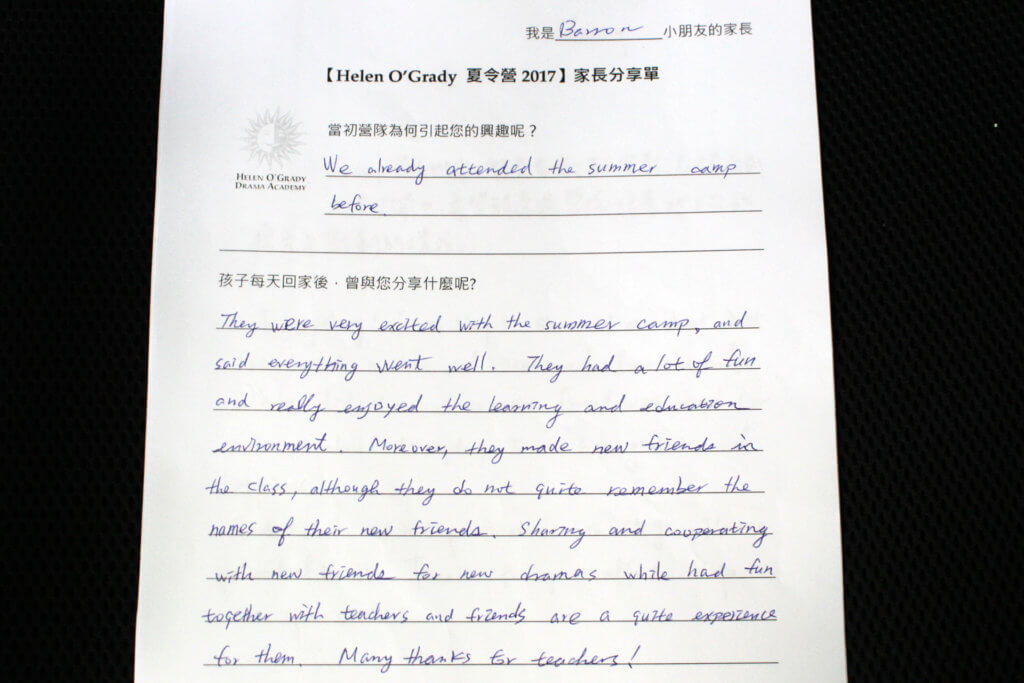 我是 Barron 小朋友的家長
【Helen O'Grady 夏令營 2017】家長分享單
當初營隊為何引起您的興趣呢？
HELEN O'GRADY
DRAMA ACADEMY
We already attended the summer camp
before.
孩子每天回家後，曾與您分享什麼呢?
They were very excited with the summer camp, and
said everything went well. They had a lot of fun
and really enjoyed the learning and education
environment. Moreover, they made new friends in
the class, although they do not quite remember the
names of their new friends. Sharing and cooperating
with new friends for new dramas while had fun
together with teachers and friends are a quite experience
for them. Many thanks for teachers!